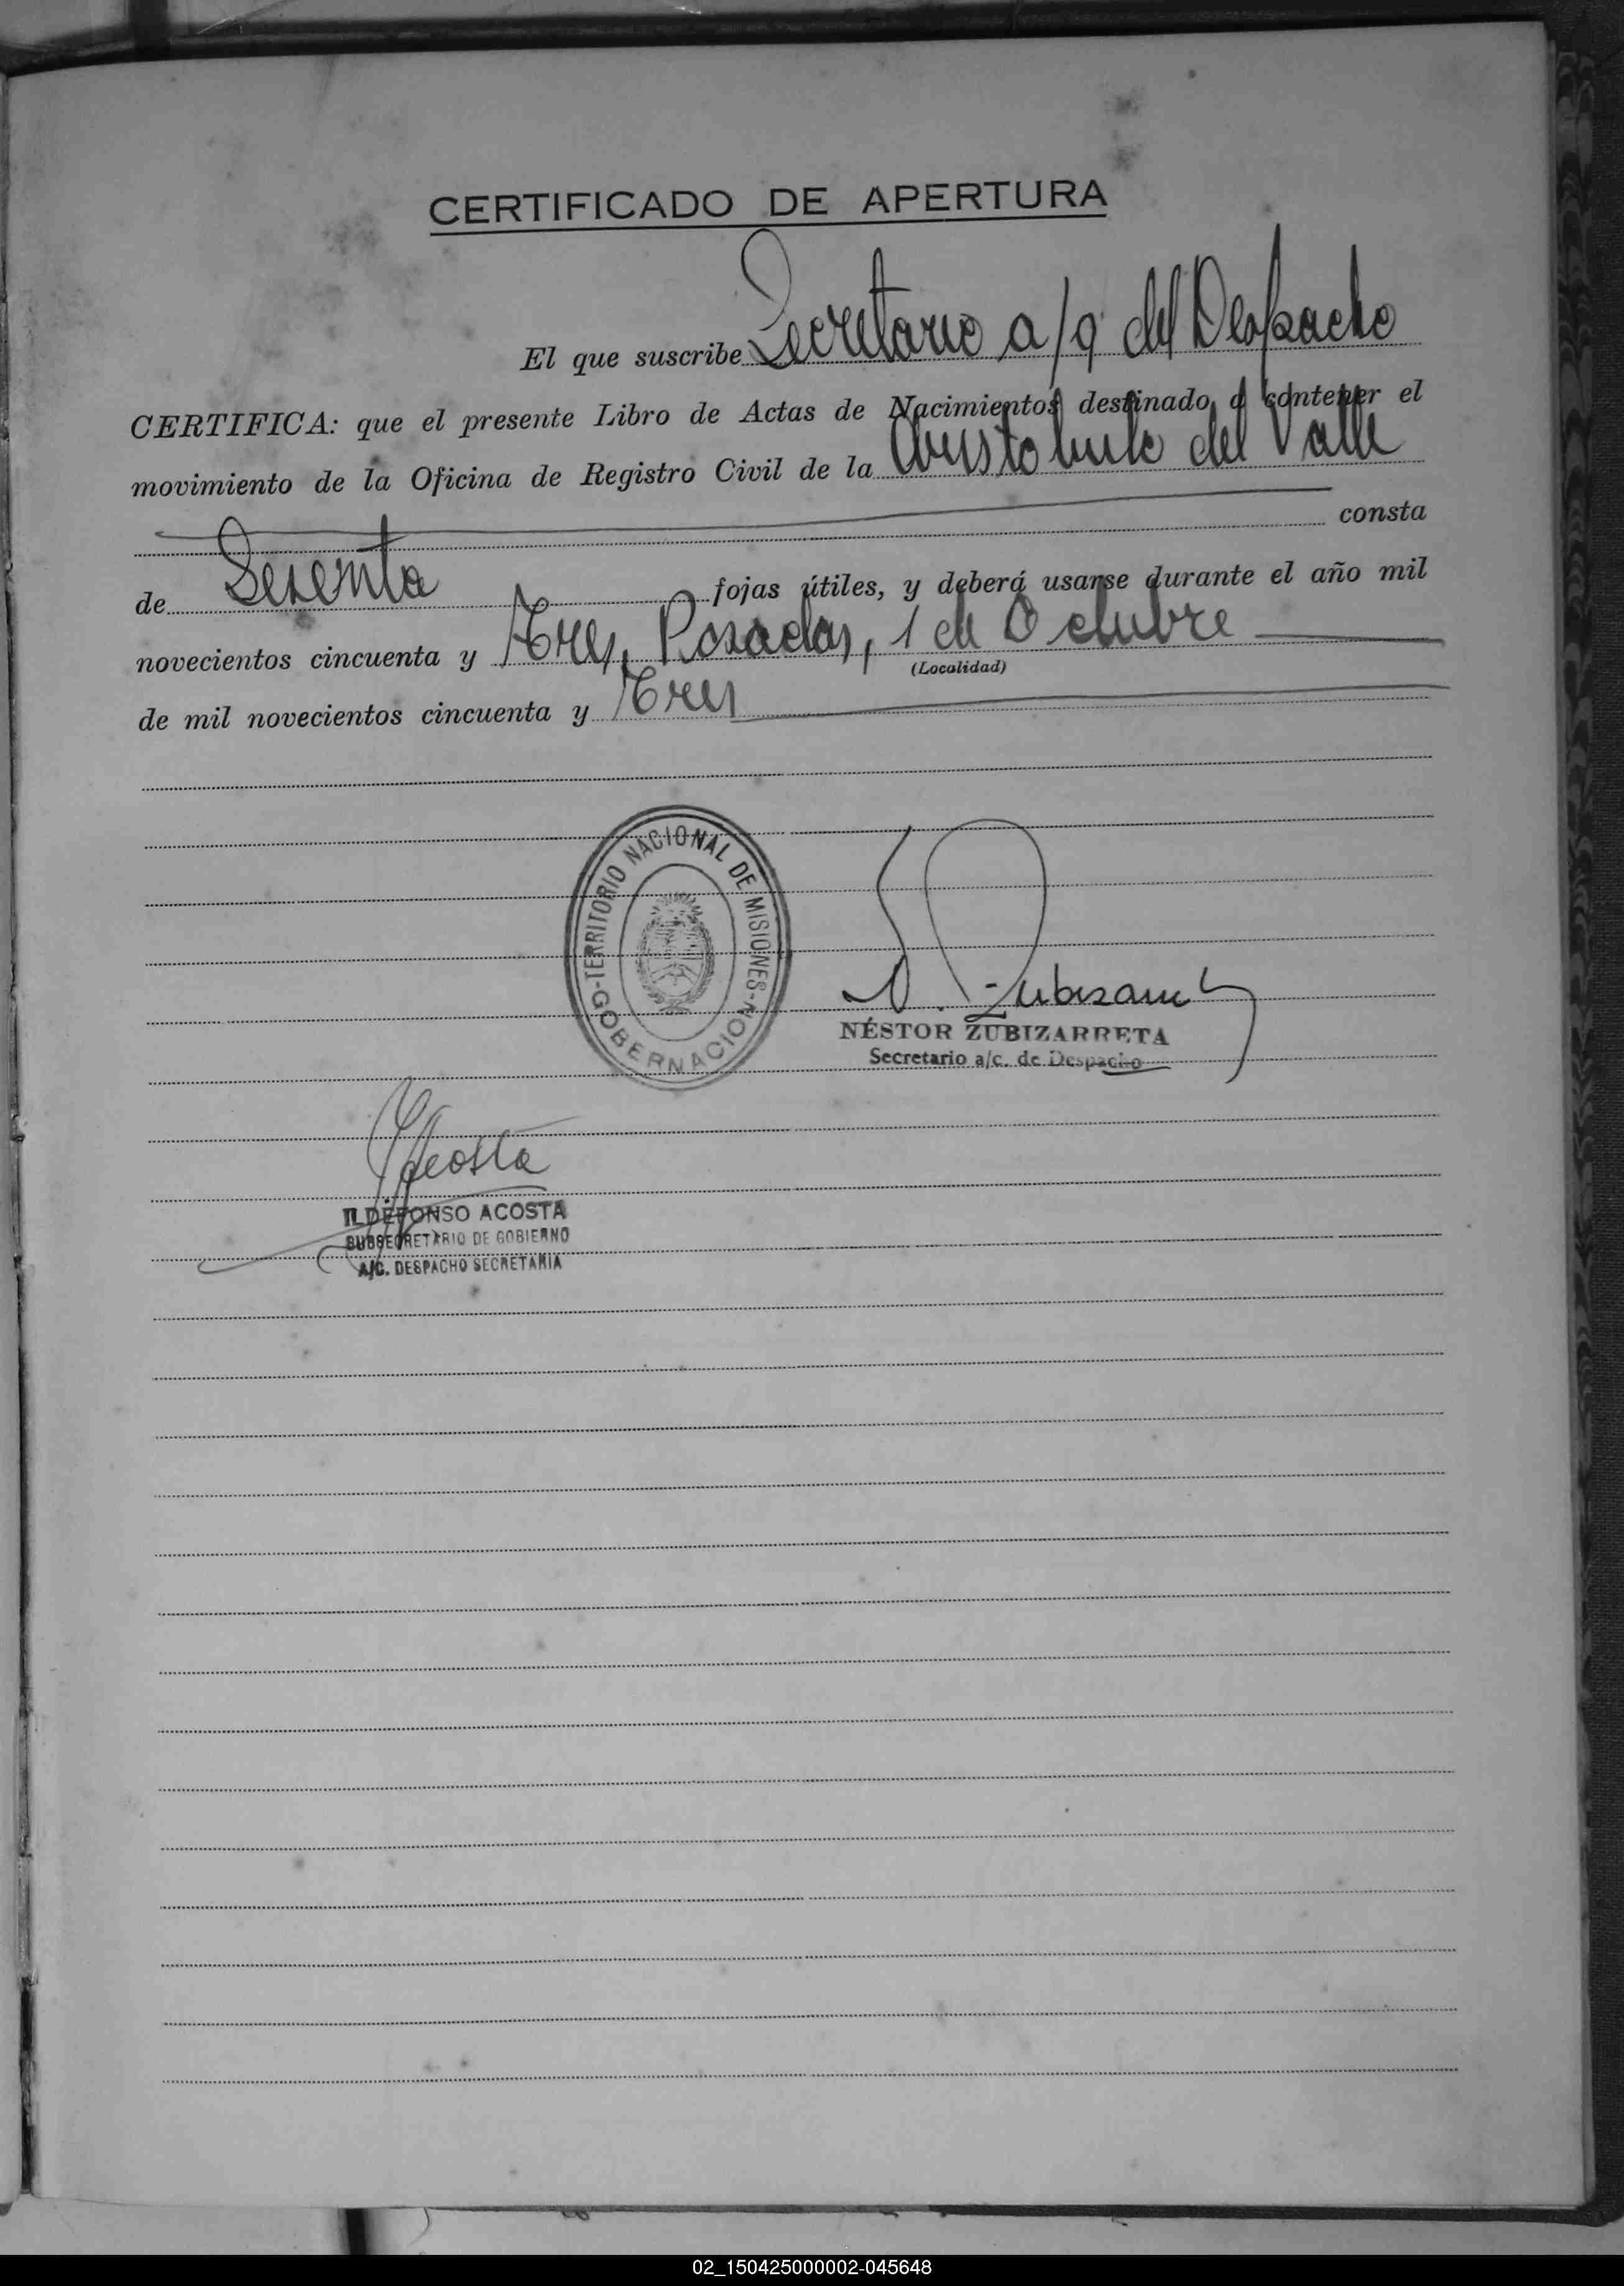 CERTIFICADO DE APERTURA
El que suscribe Secretario a/g del Despacho
CERTIFICA: que el presente Libro de Actas de Nacimientos destinado a contener el
movimiento de la Oficina de Registro Civil de la Aristobulo del Valle
consta
de Sesenta fojas útiles, y deberá usarse durante el año mil
novecientos cincuenta y Tres, Posadas, 1 de Octubre
(Localidad)
de mil novecientos cincuenta y Tres
TERRITORIO NACIONAL DE MISIONES
GOBERNACION
N. Zubizarreta
NÉSTOR ZUBIZARRETA
Secretario a/c. de Despacho
IAcosta
ILDEFONSO ACOSTA
SUBSECRETARIO DE GOBIERNO
A/C. DESPACHO SECRETARIA
02_150425000002-045648